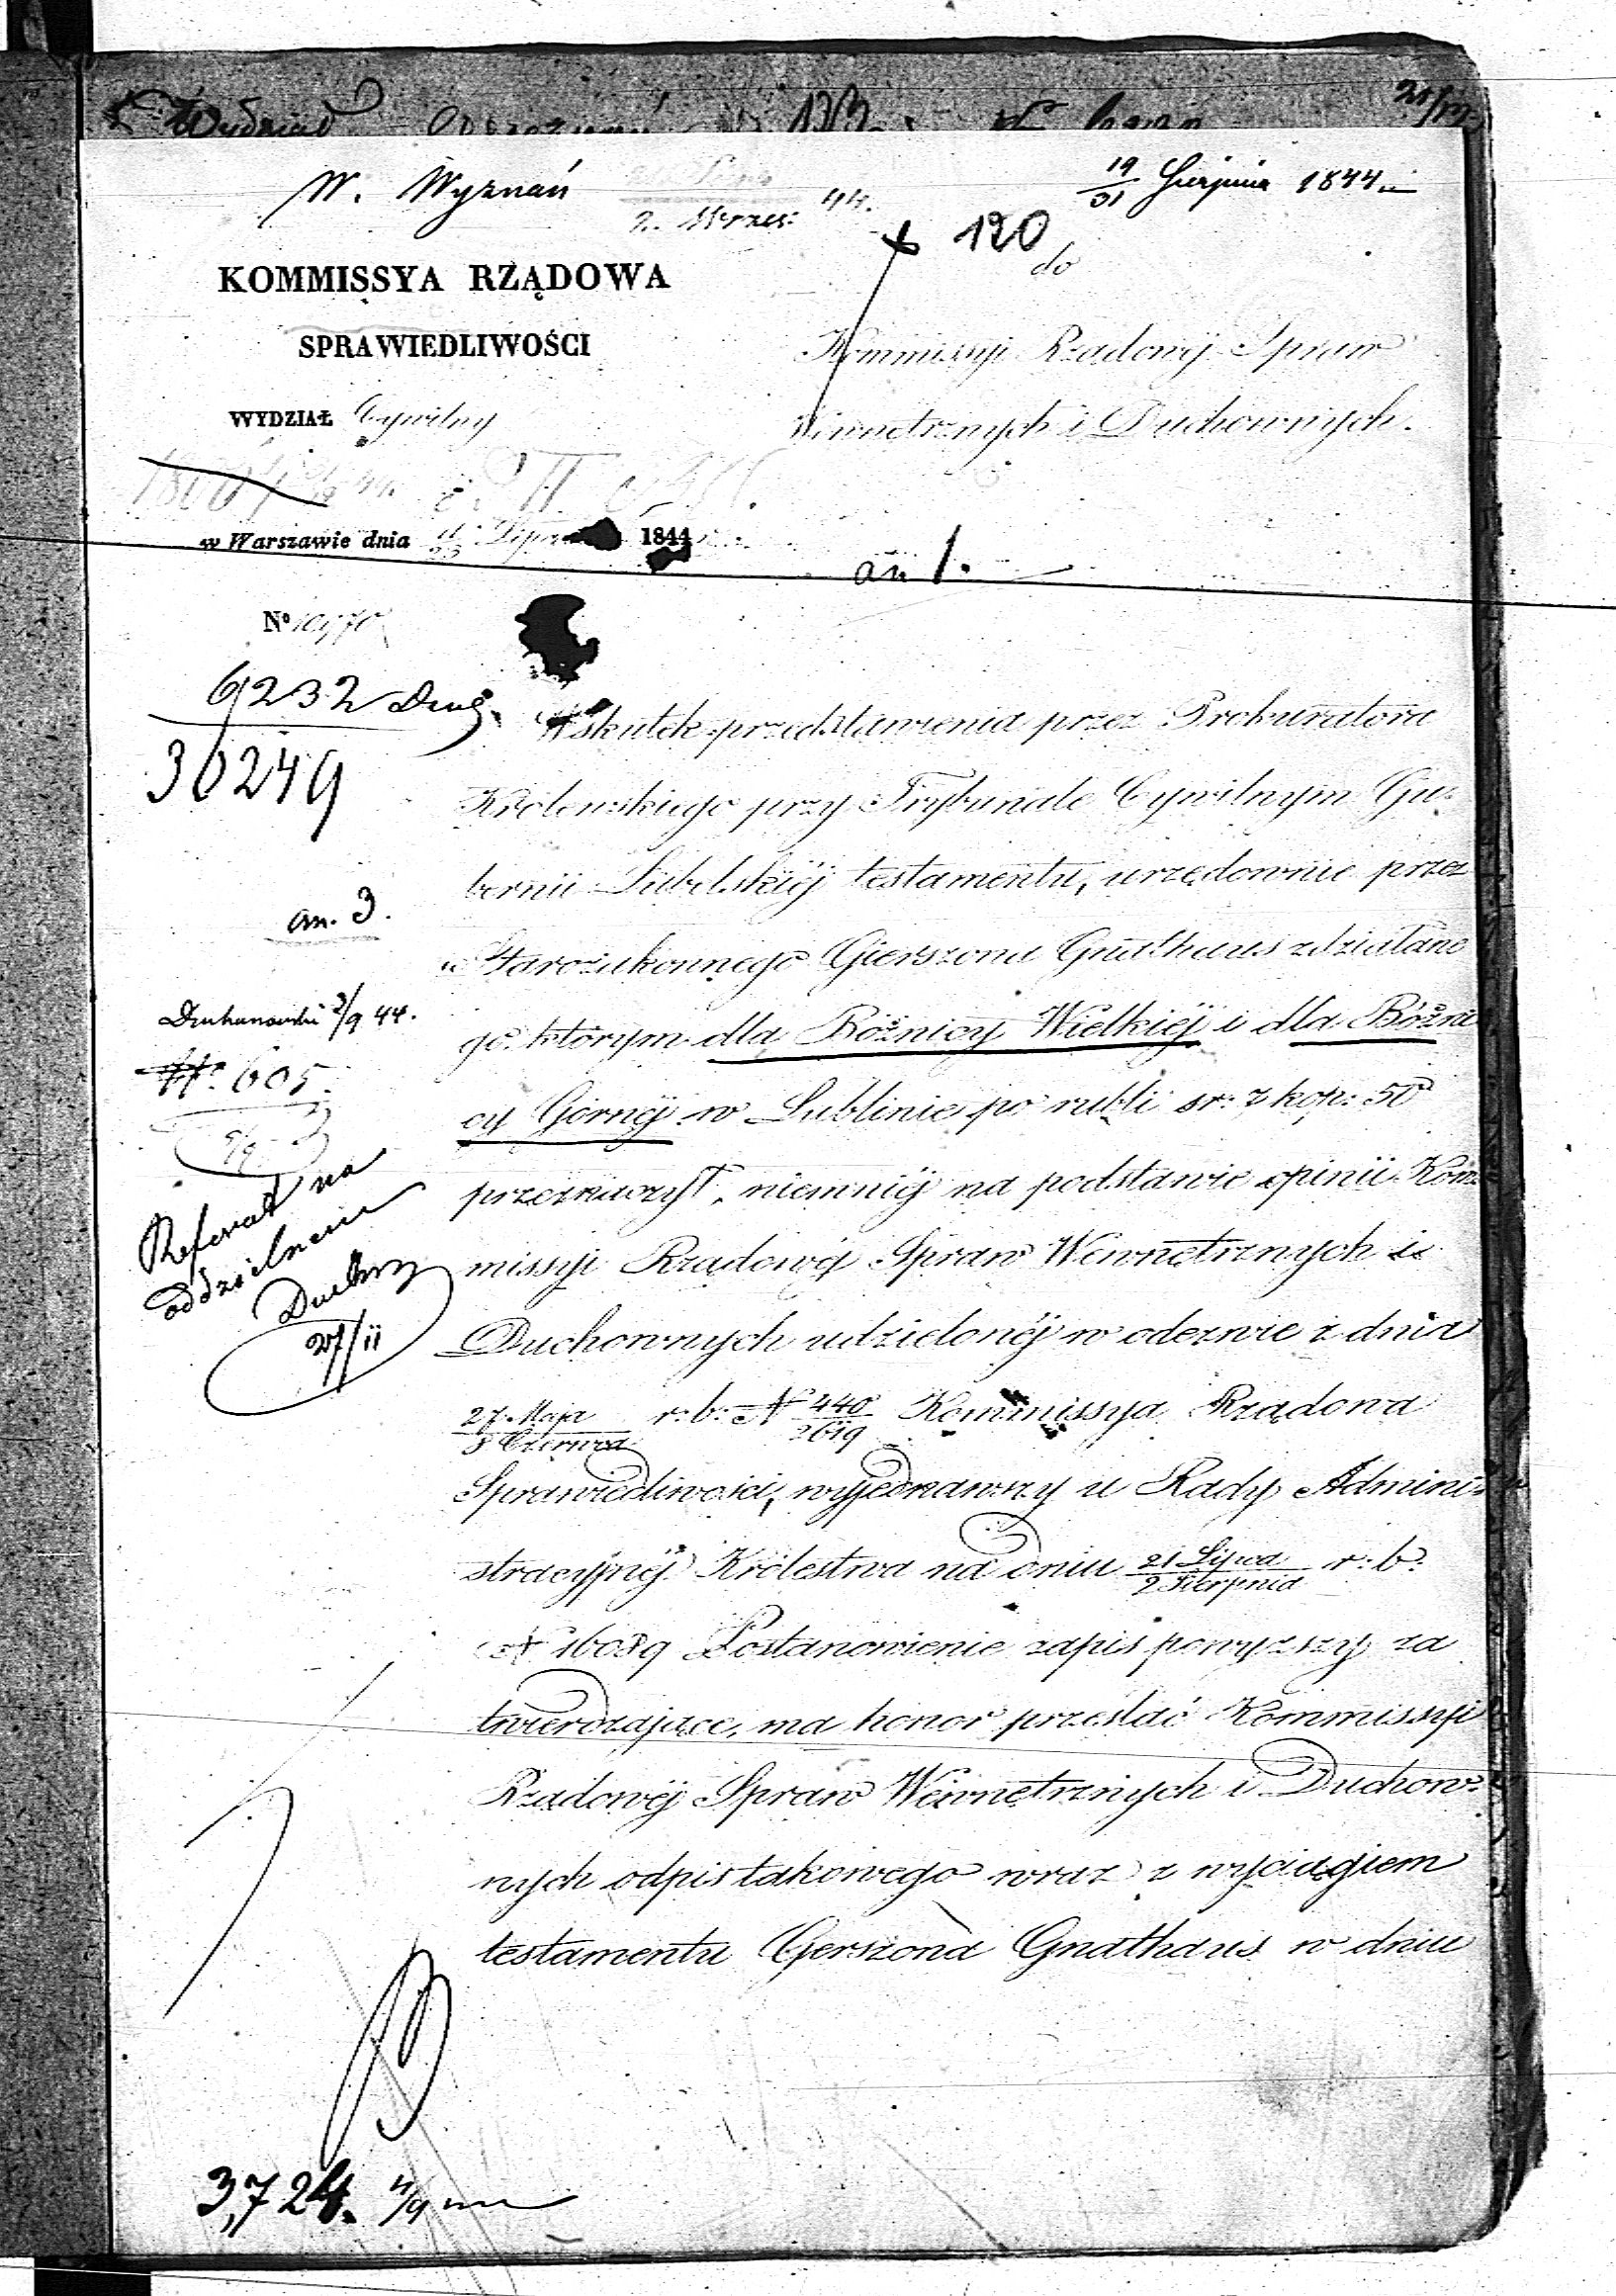 Wydział
W. Wyznań
2. Wrześ: 44.
19/31 Sierpnia 1844
120
do
KOMMISSYA RZĄDOWA
SPRAWIEDLIWOŚCI
Kommissyi Rządowéj Spraw
WYDZIAŁ Cywilny
Wewnętrznych i Duchownych.
w Warszawie dnia 1844
an 1.
No
6232
30249
Wskutek przedstawienia przez Prokuratora
Królewskiego przy Trybunale Cywilnym Gu-
bernii Lubelskiéj testamentu, urzędownie przez
an. 3.
Starozakonnego Gierszona Gnathaus zdziałane
3/9 44.
go, którym dla Bóżnicy Wielkiéj i dla Bóżni
605
cy Górnéj w Lublinie po rubli sr: 7 kop: 50
5/9
przeznaczył, niemniéj na podstawie opinii Kom-
Referat na
oddzielnem
missyi Rządowéj Spraw Wewnętrznych i
27/11
Duchownych udzielonéj w odezwie z dnia
27 Maja/8 Czerwca r: b: N 440/2619 Kommissya Rządowa
Sprawiedliwości, wyjednawszy u Rady Admini-
stracyjnéj Królestwa na dniu 21 Lipca/2 Sierpnia r: b:
N 16089 Postanowienie zapis powyższy za
twierdzające, ma honor przesłać Kommissyi
Rządowéj Spraw Wewnętrznych i Duchow-
nych odpis takowego wraz z wyciągiem
testamentu Gerszona Gnathaus w dniu
3,724. 4/9